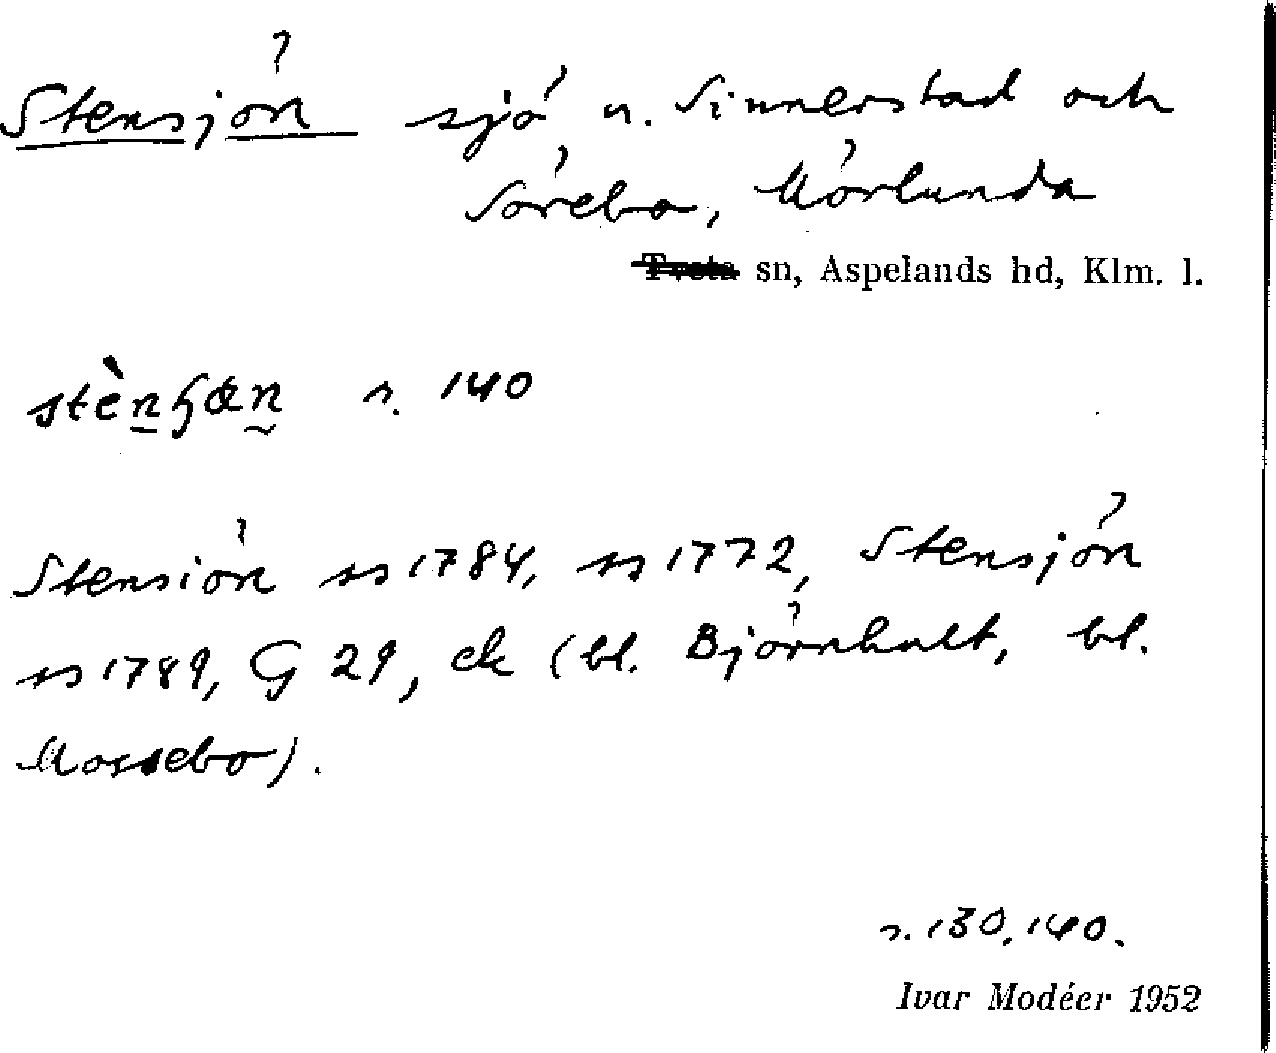 Stensjön sjö, n. Sinnerstad och
Sörebo, Mörlunda
Tveta sn, Aspelands hd, Klm. l.
s. 140
Stensiön ss 1784, ss 1772, Stensjön
ss 1789, G 29, ek (bl. Björnhult, bl.
Mossebo).
s. 130, 140.
Ivar Modéer 1952